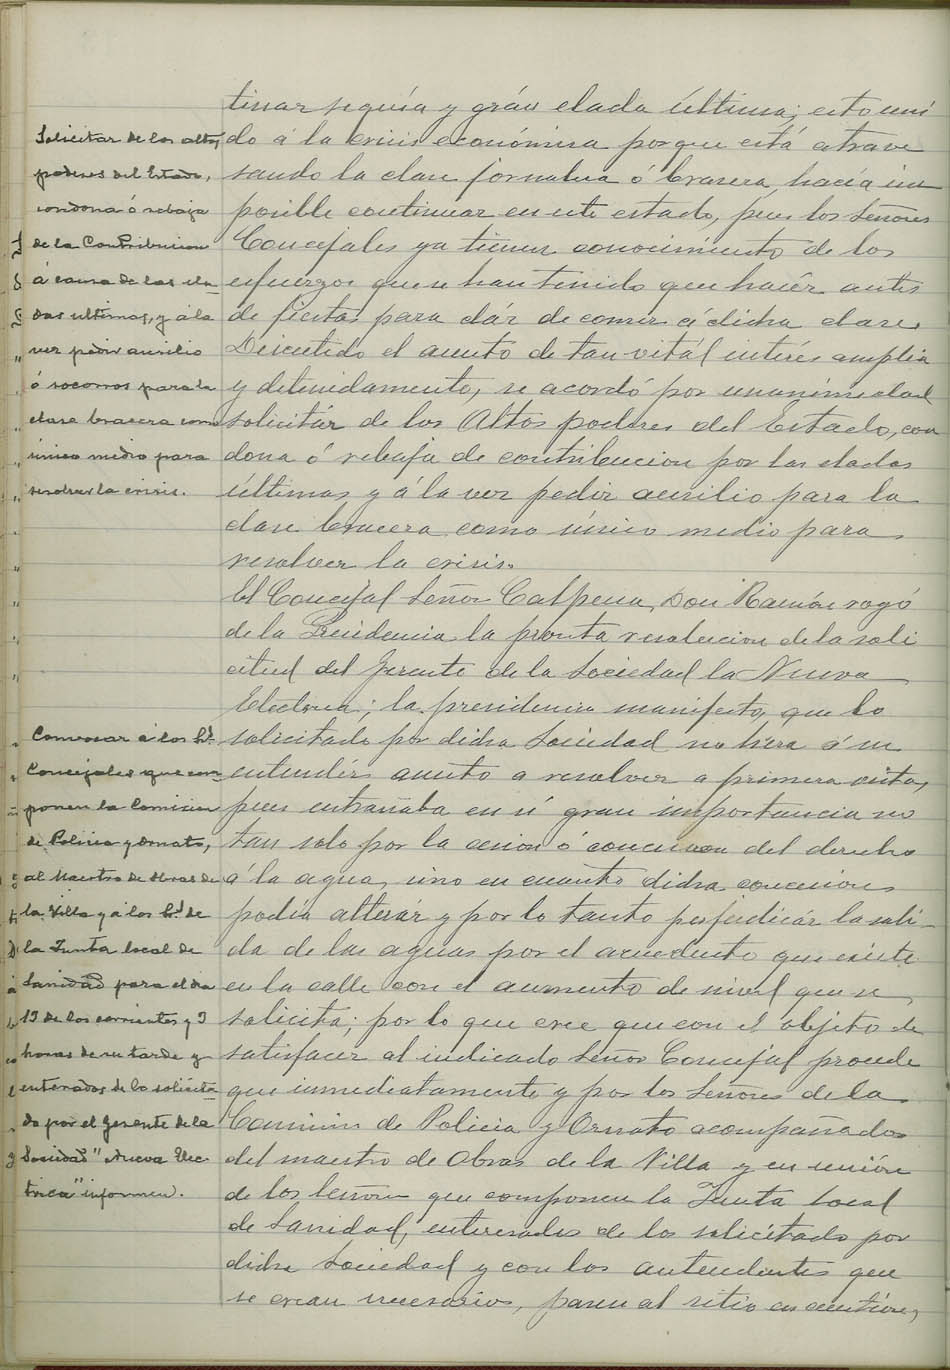 Solicitar de los altos
poderes del Estado,
condona ó rebaja
de la Contribucion
á causa de las ela-
das ultimas, y á la
vez pedir ausilio
ó socorros para la
clase bracera como
único medio para
resolver la crisis.
tinar sequía y grán elada última; esto uni
do á la crisis económica porque está atrave
sando la clase jornalera ó bracera, hacía im
posible continuar en este estado, pues los Señores
Concejales ya tienen conocimiento de los
esfuerzos que se han tenido que hacér antes
de fiestas para dár de comer á dicha clase.
Discutido el asunto de tan vitál interés amplia
y detenidamente, se acordó por unanimidad
solicitár de los Altos poderes del Estado, con
dona ó rebaja de contribucion por las eladas
últimas y á la vez pedir ausilio para la
clase bracera como único medio para
resolver la crisis.
El Concejal Señor Calpena, Don Ramón rogó
de la Presidencia la pronta resolucion de la soli
citud del Gerente de la Sociedad la Nueva
Electrica; la presidencia manifesto, que lo
Convocar á los Srs.
Concejales que com
ponen la Comision
de Policia y Ornato,
al Maestro de Obras de
la Villa y á los Srs. de
la Junta local de
Sanidad para el dia
13 de los corrientes y 3
horas de su tarde y
enterados de lo solicita-
do por el Gerente de la
Sociedad "Nueva Elec
trica" informen.
solicitado por dicha Sociedad no hera á su
entendér asunto a resolver a primera vista,
pues entrañaba en sí gran importancia no
tan solo por la cesion ó concesion del derecho
á la agua, sino en cuanto dicha concesion
podia alterár y por lo tanto perjudicár la sali-
da de las aguas por el acueducto que existe
en la calle con el aumento de nivel que se
solicita; por lo que cree que con el objeto de
satisfacer al indicado Señor Concejal procede
que inmediatamente y por los Señores de la
Comision de Policia y Ornato acompañados
del maestro de Obras de la Villa y en unión
de los Señores que componen la Junta local
de Sanidad, enterados de los solicitado por
dicha Sociedad y con los antecedentes que
se crean necesarios, pasen al sitio en cuestión,